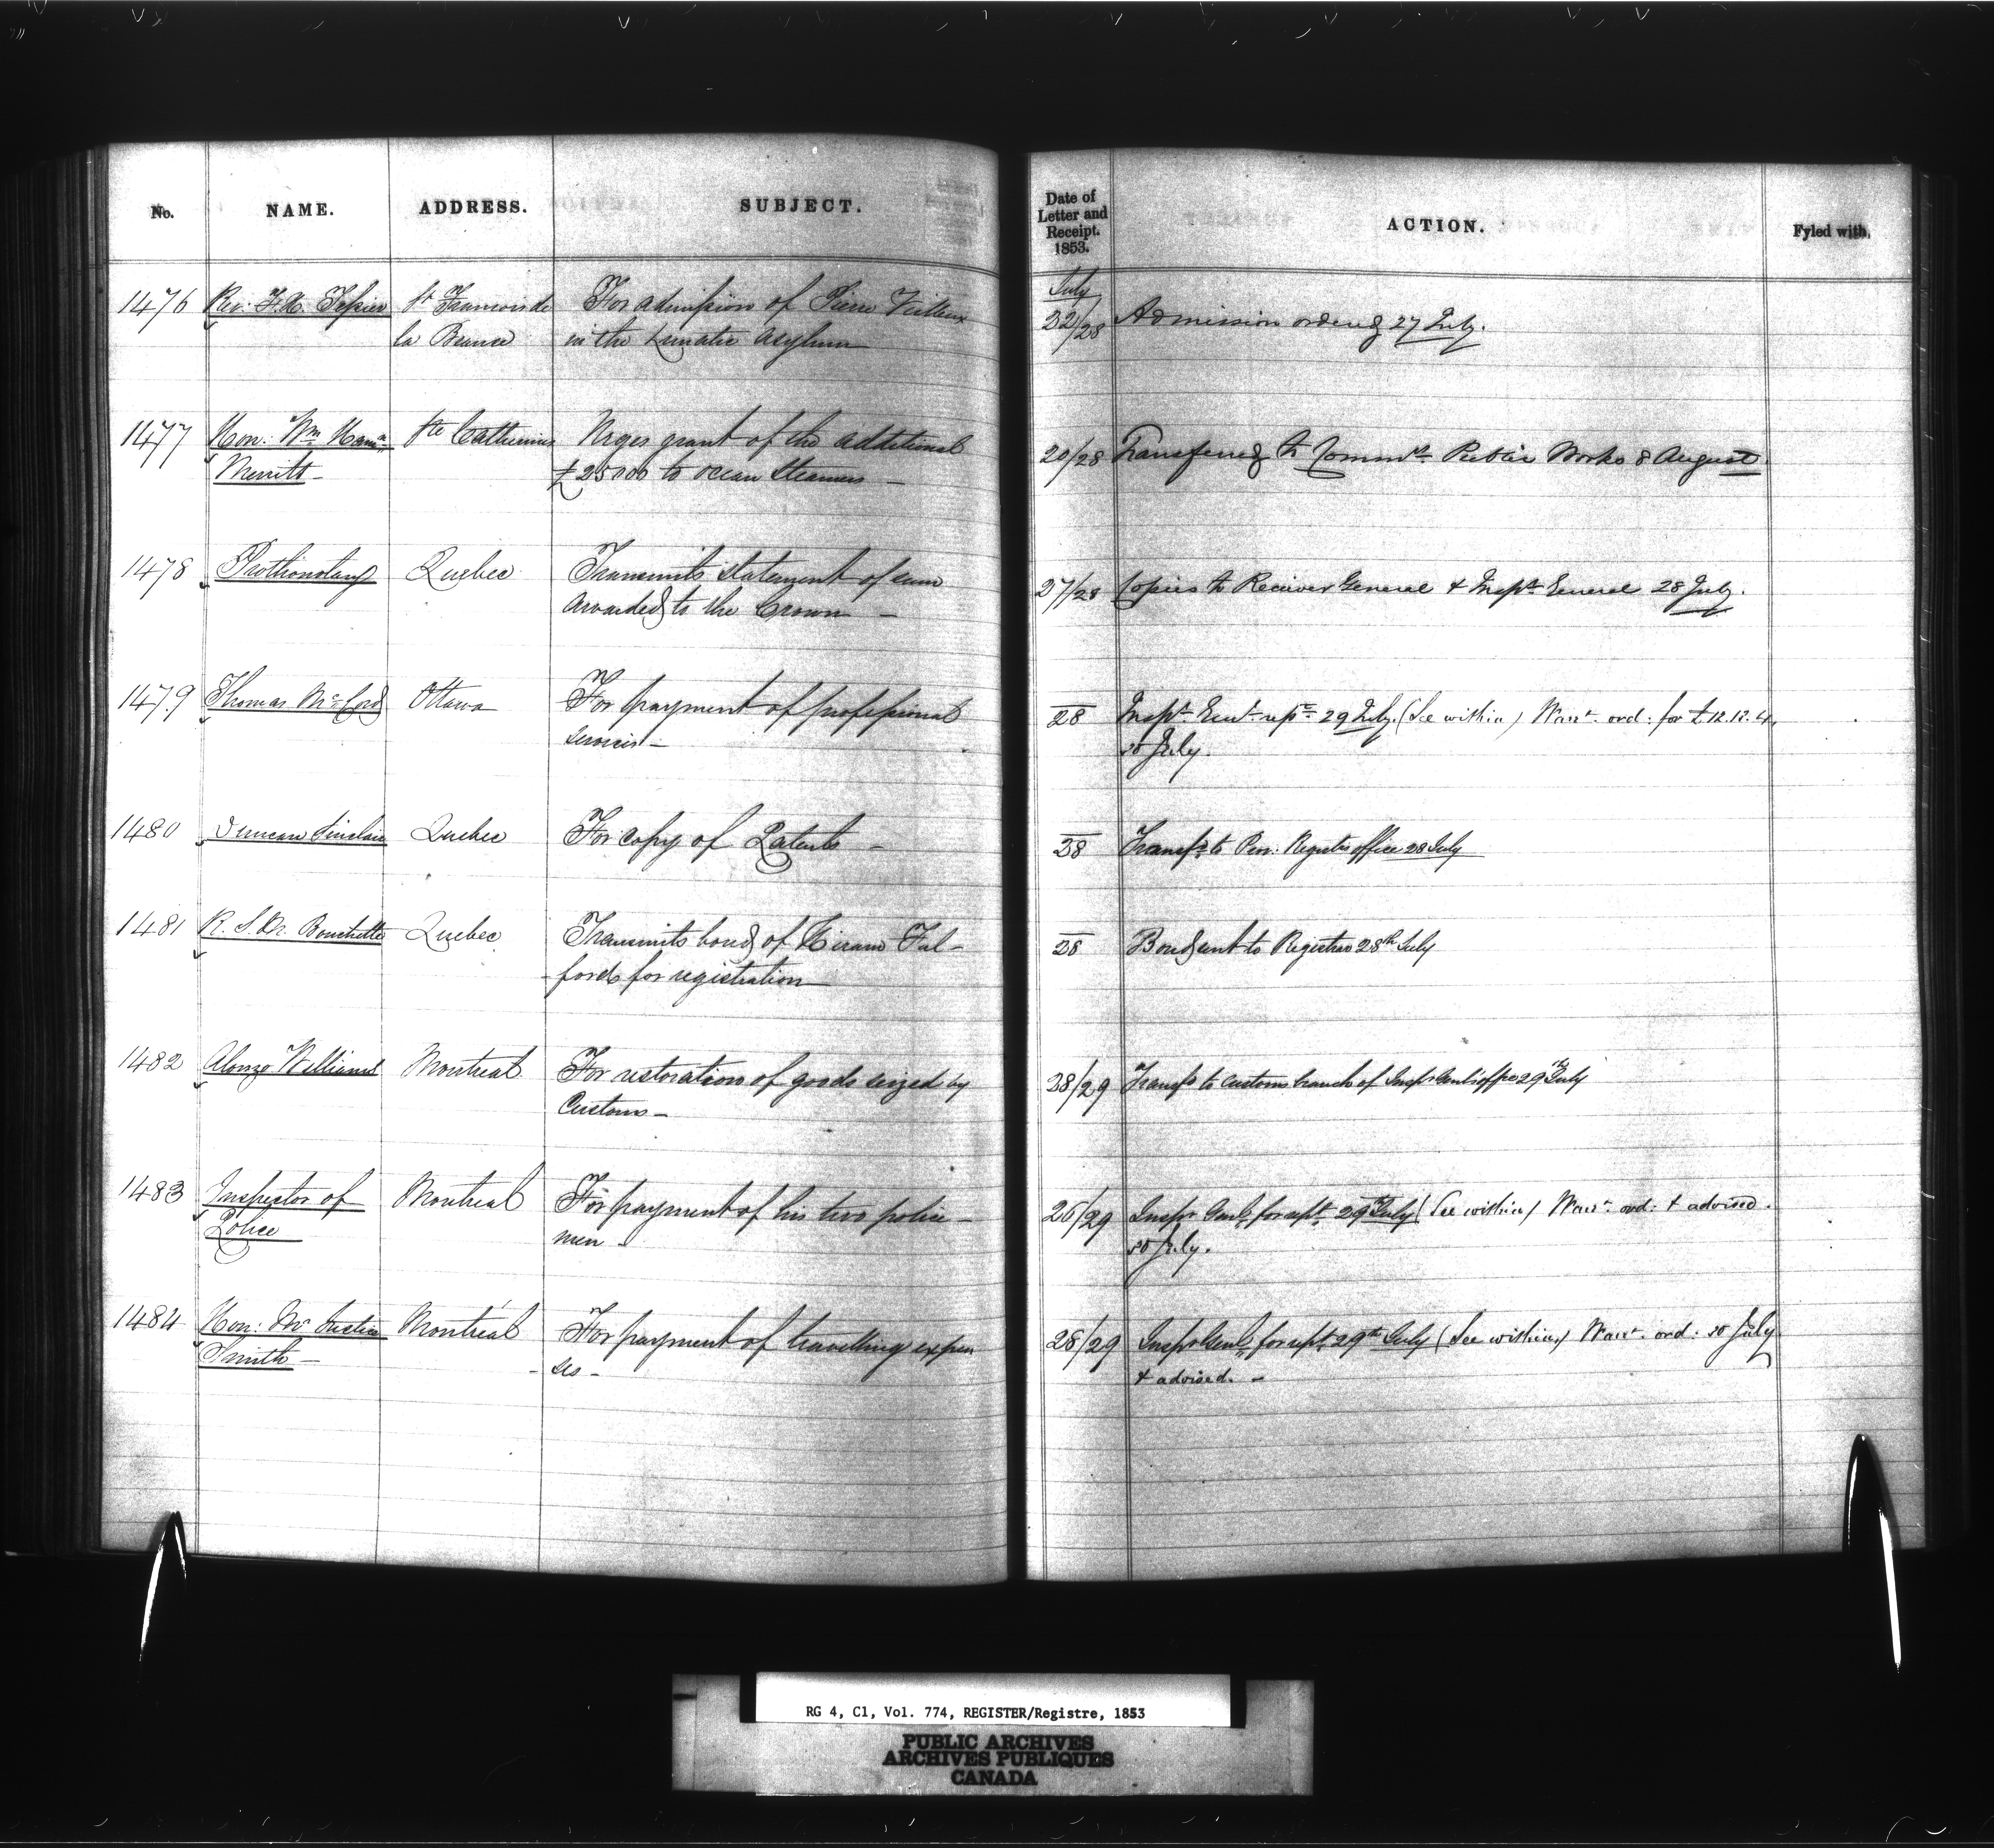 No. NAME. ADDRESS. SUBJECT. Date of Letter and Receipt. 1853. ACTION. Fyled with.
July
1476 Rev: F. X. Tessier St Francois de For admission of Pierre Vieilleux 22/28 Admission ordered 27 July.
la Beauce in the Lunatic Asylum
1477 Hon: Wm Ham: Ste Catherines Urges grant of the additional 20/28 Transferred to Commrs Public Works 8 August
Merritt - £25000 to ocean Steamers -
1478 Prothonotary Quebec Transmits statement of sum 27/28 Copies to Receiver General & Inspr General 28 July.
awarded to the Crown -
1479 Thomas McCord Ottawa For payment of professional 28 Inspr Genl 29 July. (See within) Warrt. ord: for £12.12.4.
services - 30 July.
1480 Duncan Sinclair Quebec For copy of Patents - 28 Transfd to Pro: Registrs office 28 July
1481 R. S. M. Bouchette Quebec Transmits bond of Hiram Ful- 28 Bond sent to Registrar 28th July
fords for registration -
1482 Alonzo Williams Montreal For restoration of goods seized by 28/29 Transfd to Customs branch of Inspr Genls office 29th July
Customs -
1483 Inspector of Montreal For payment of his two police 26/29 Inspr Genl for rept 29th July (See within) Warrt. ord: & advised.
Police men - 30 July.
1484 Hon: Mr Justice Montreal For payment of travelling expen 28/29 Inspr Genl for rept 29th July (See within) Warrt. ord: 30 July
Smith - ses - & advised. -
RG 4, C1, Vol. 774, REGISTER/Registre, 1853
PUBLIC ARCHIVES
ARCHIVES PUBLIQUES
CANADA